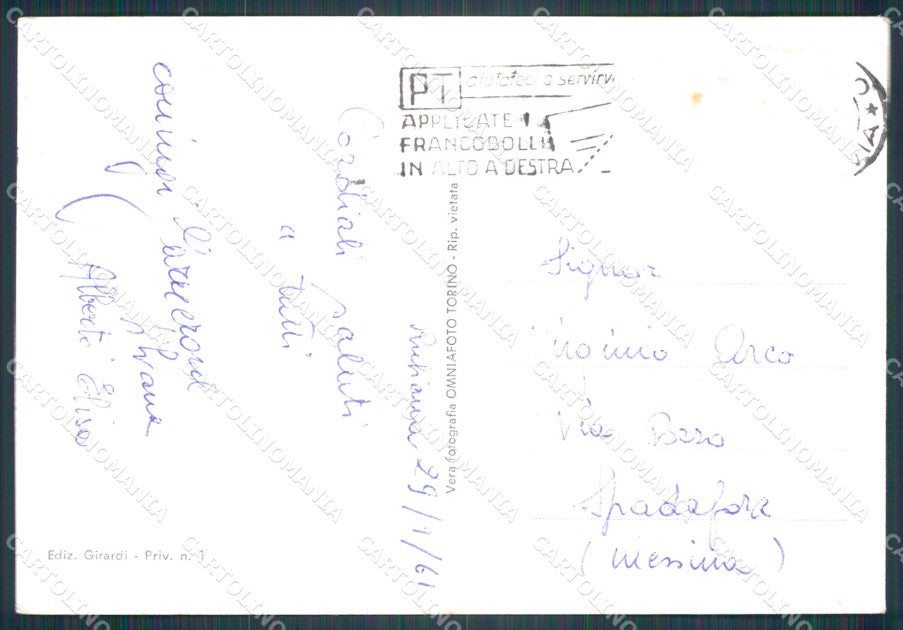 PT aiutateci a servirvi
APPLICATE
FRANCOBOLLI
IN ALTO A DESTRA
29/1/61
Cordiali saluti
a tutti
coniugi
Alberto Elisa
Vera fotografia OMNIAFOTO TORINO - Rip. vietata
Signor
Arco
Via
Spadafora
(Messina)
Ediz. Girardi - Priv. n. 1
CARTOLINOMANIA